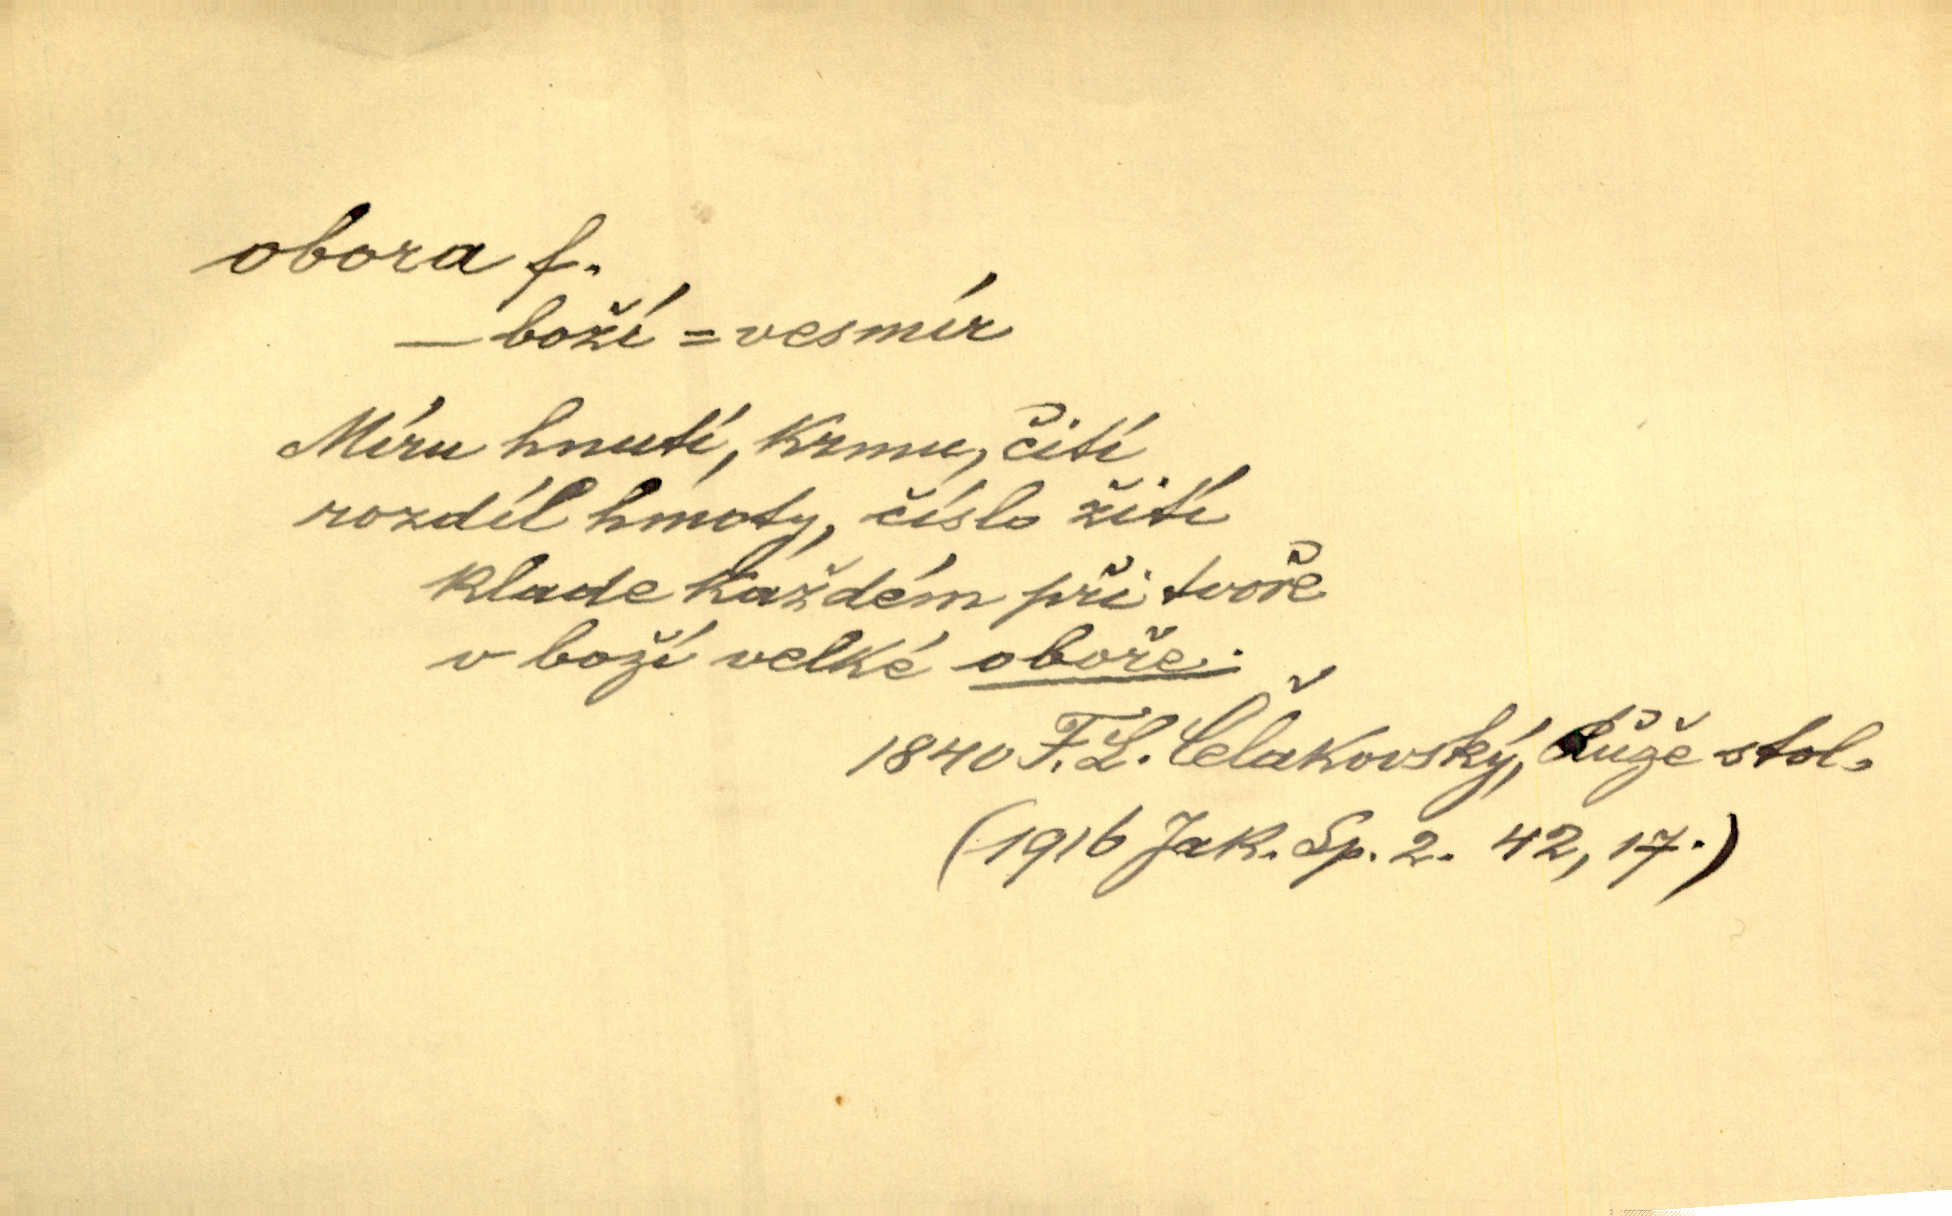 obora f.
— boží = vesmír
Míru hnutí, krmu, čití
rozdíl hmoty, číslo žití
klade každém při tvoře
v boží velké oboře.
1840 F. L. Čelakovský, Růže stol.
(1916 Jak. Sp. 2. 42, 17.)